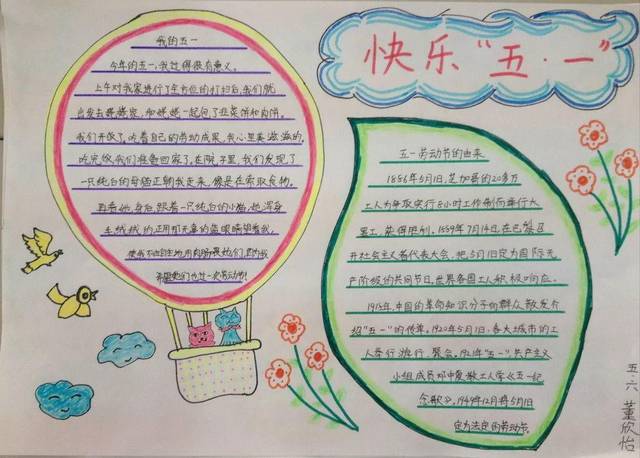 快乐“五·一”
我的五一
今年的五一,我过得很有意义。
上午对我家进行了全方位的打扫后,我们就
出发去姥姥家,和姥姥一起包了韭菜饼和肉饼。
我们开饭了,吃着自己的劳动成果,我心里美滋滋的。
吃完饭,我们准备回家了,在院子里,我们发现了
一只纯白的母猫正朝我走来,像是在索取食物。
再看他身后,跟着一只纯白的小猫,她浑身
毛绒绒的正用那天真的蓝眼睛望着我,
使我不由自主地用肉饼喂她们,
希望她们也过一次劳动节!
五一劳动节的由来
1886年5月1日,芝加哥的20多万
工人为争取实行8小时工作制而举行大
罢工,获得胜利。1889年7月14日,在巴黎召
开社会主义者代表大会,把5月1日定为国际无
产阶级的共同节日,世界各国工人积极响应。
1915年,中国的革命知识分子向群众散发介
绍“五一”的传单。1920年5月1日,各大城市的工
人举行游行、聚会。1921年“五一”,共产主义
小组成员邓中夏教工人学《五一纪
念歌》,1949年12月将5月1日
定为法定的劳动节。
五·六 董欣怡